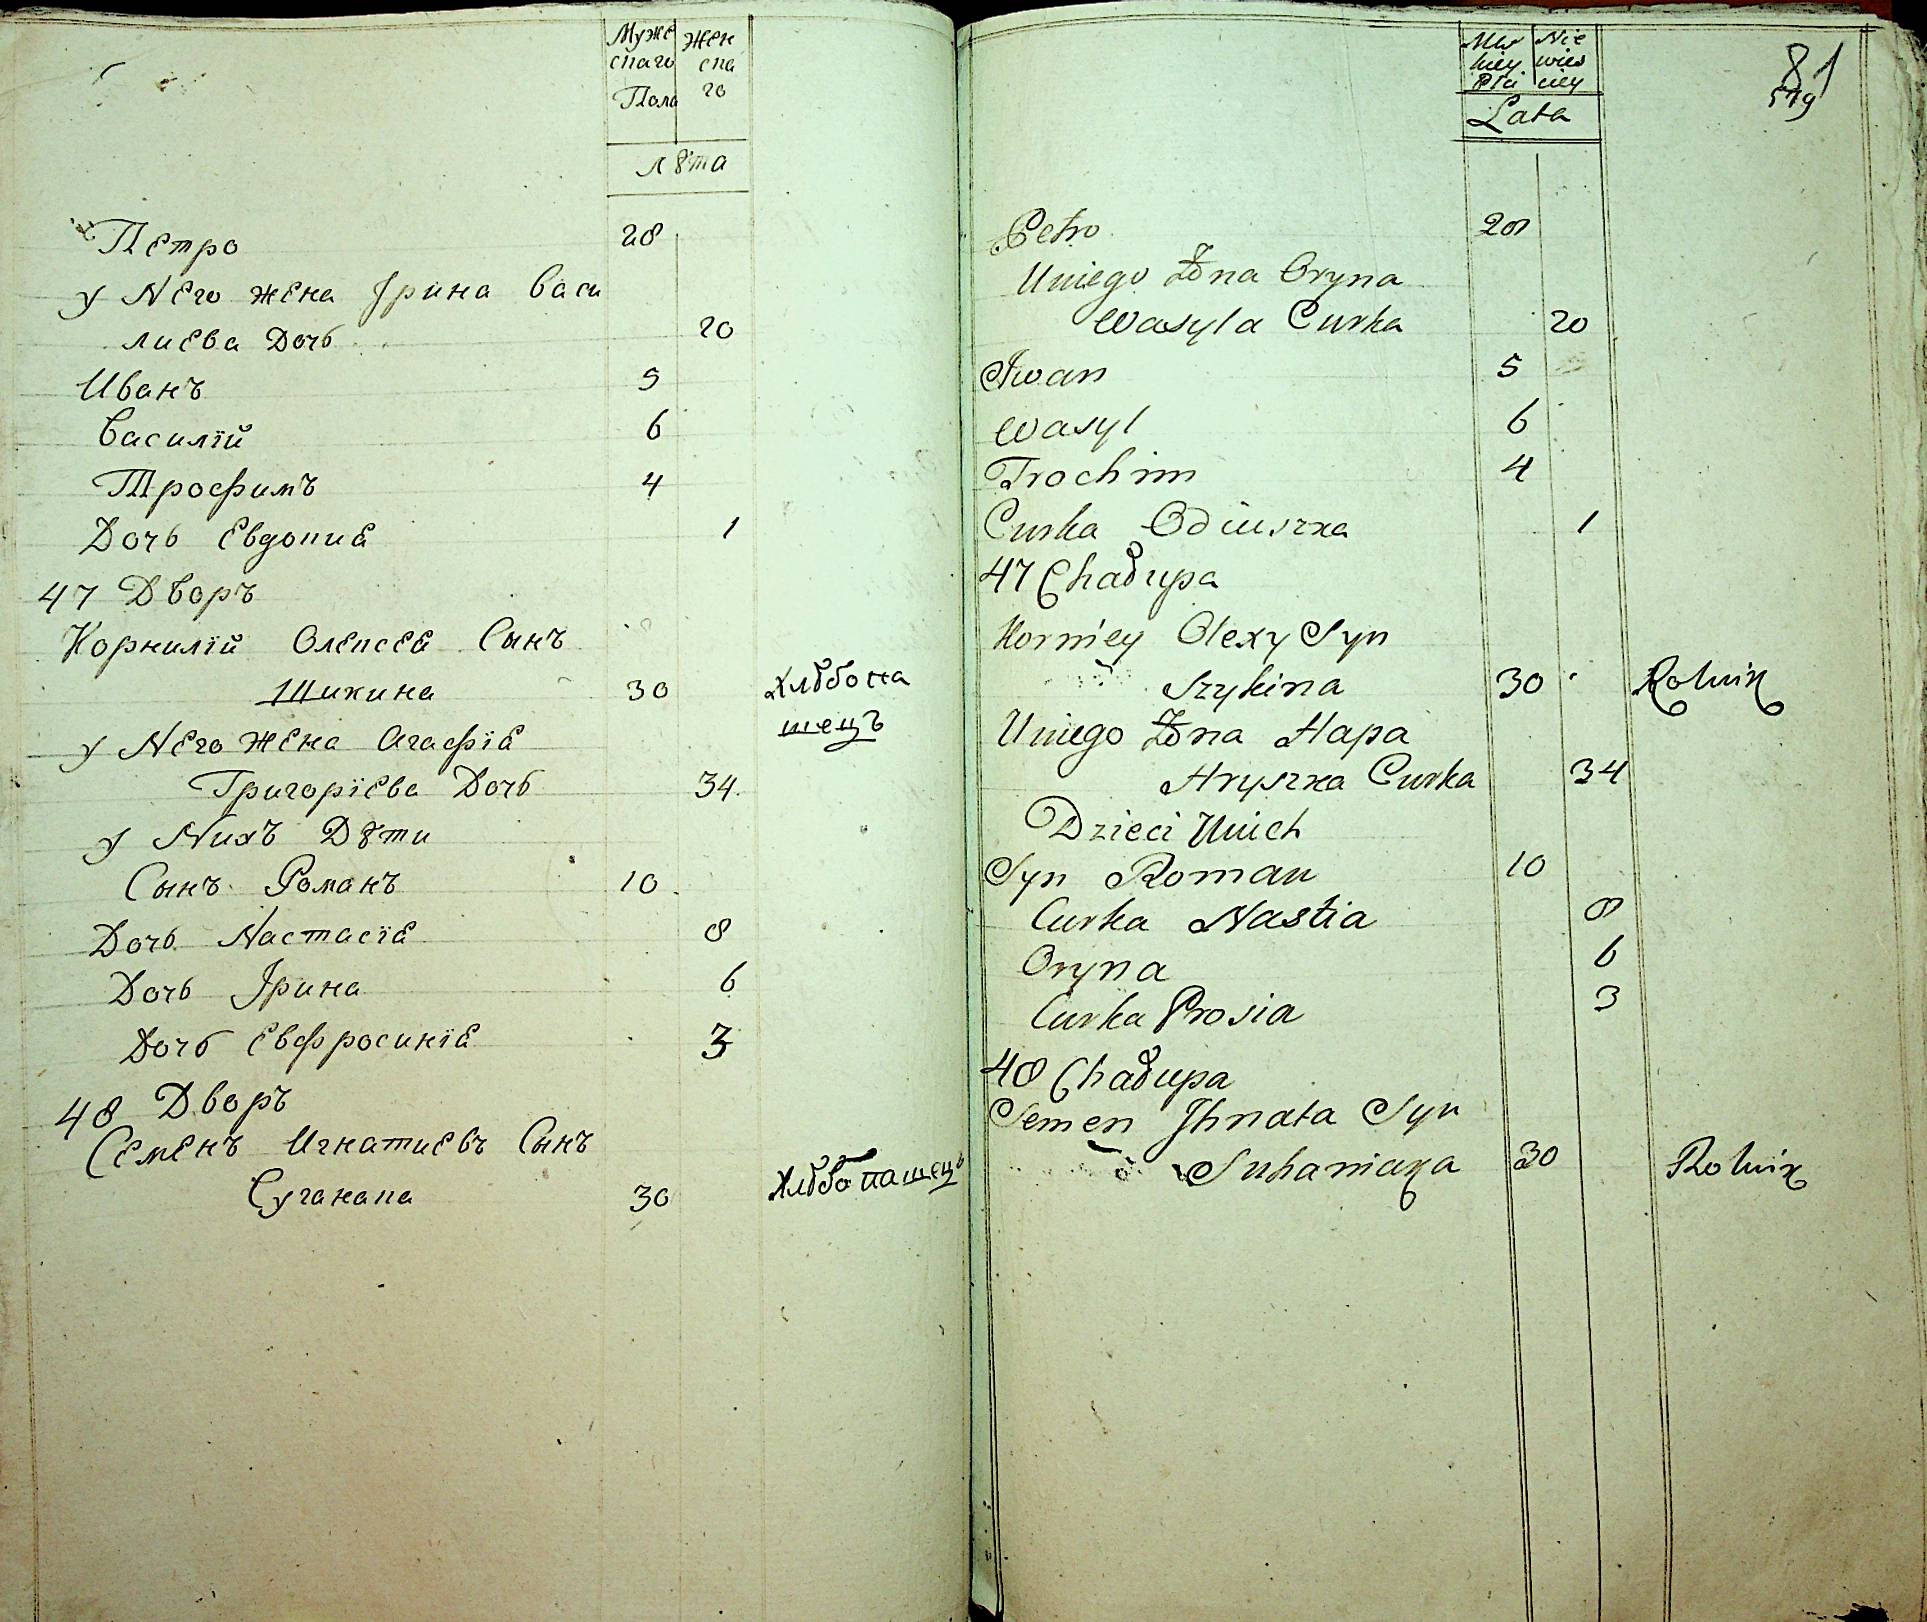 Муже Жен
скаго ска
Пола го
лѣта
Петро 28
у Него жена Ірина Васи
лиева Дочь 20
Иванъ 5
Василій 6
Трофимъ 4
Дочь Евдокиа 1
47 Дворъ
Корнилій Олексея Сынъ
Шикина 30 Хлѣбопа
шецъ
у Него жена Агафіа
Григоріева Дочь 34
у Нихъ Дѣти
Сынъ Романъ 10
Дочь Настасіа 8
Дочь Ірина 6
Дочь Евфросиніа 3
48 Дворъ
Семенъ Игнатиевъ Сынъ
Суганака 30 Хлѣбопашецъ
81
519
Nie
kiey wies
Płci ciey
Lata
Petro 28
Uniego Żona Oryna
Wasyla Curka 20
Iwan 5
Wasyl 6
Trochim 4
Curka 1
47 Chałupa
Korniey Olexy Syn
Szykina 30 Rolnik
Uniego Żona Hapa
Hryszka Curka 34
Dzieci Unich
Syn Roman 10
Curka Nastia 8
Oryna 6
Curka Prosia 3
48 Chałupa
Semen Ihnata Syn
Suhaniaka 30 Rolnik